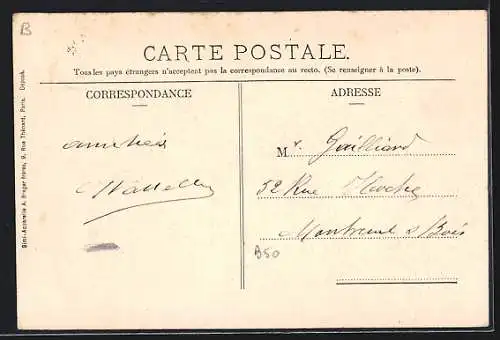 B
CARTE POSTALE.
Tous les pays étrangers n'acceptent pas la correspondance au recto. (Se renseigner à la poste).
CORRESPONDANCE
ADRESSE
Simi-Aquarelle A. Breger frères, 9, Rue Thénard, Paris. Déposé.
amitiés
Mr. Gailliard
52 Rue Hoche
Montreuil s Bois
B50